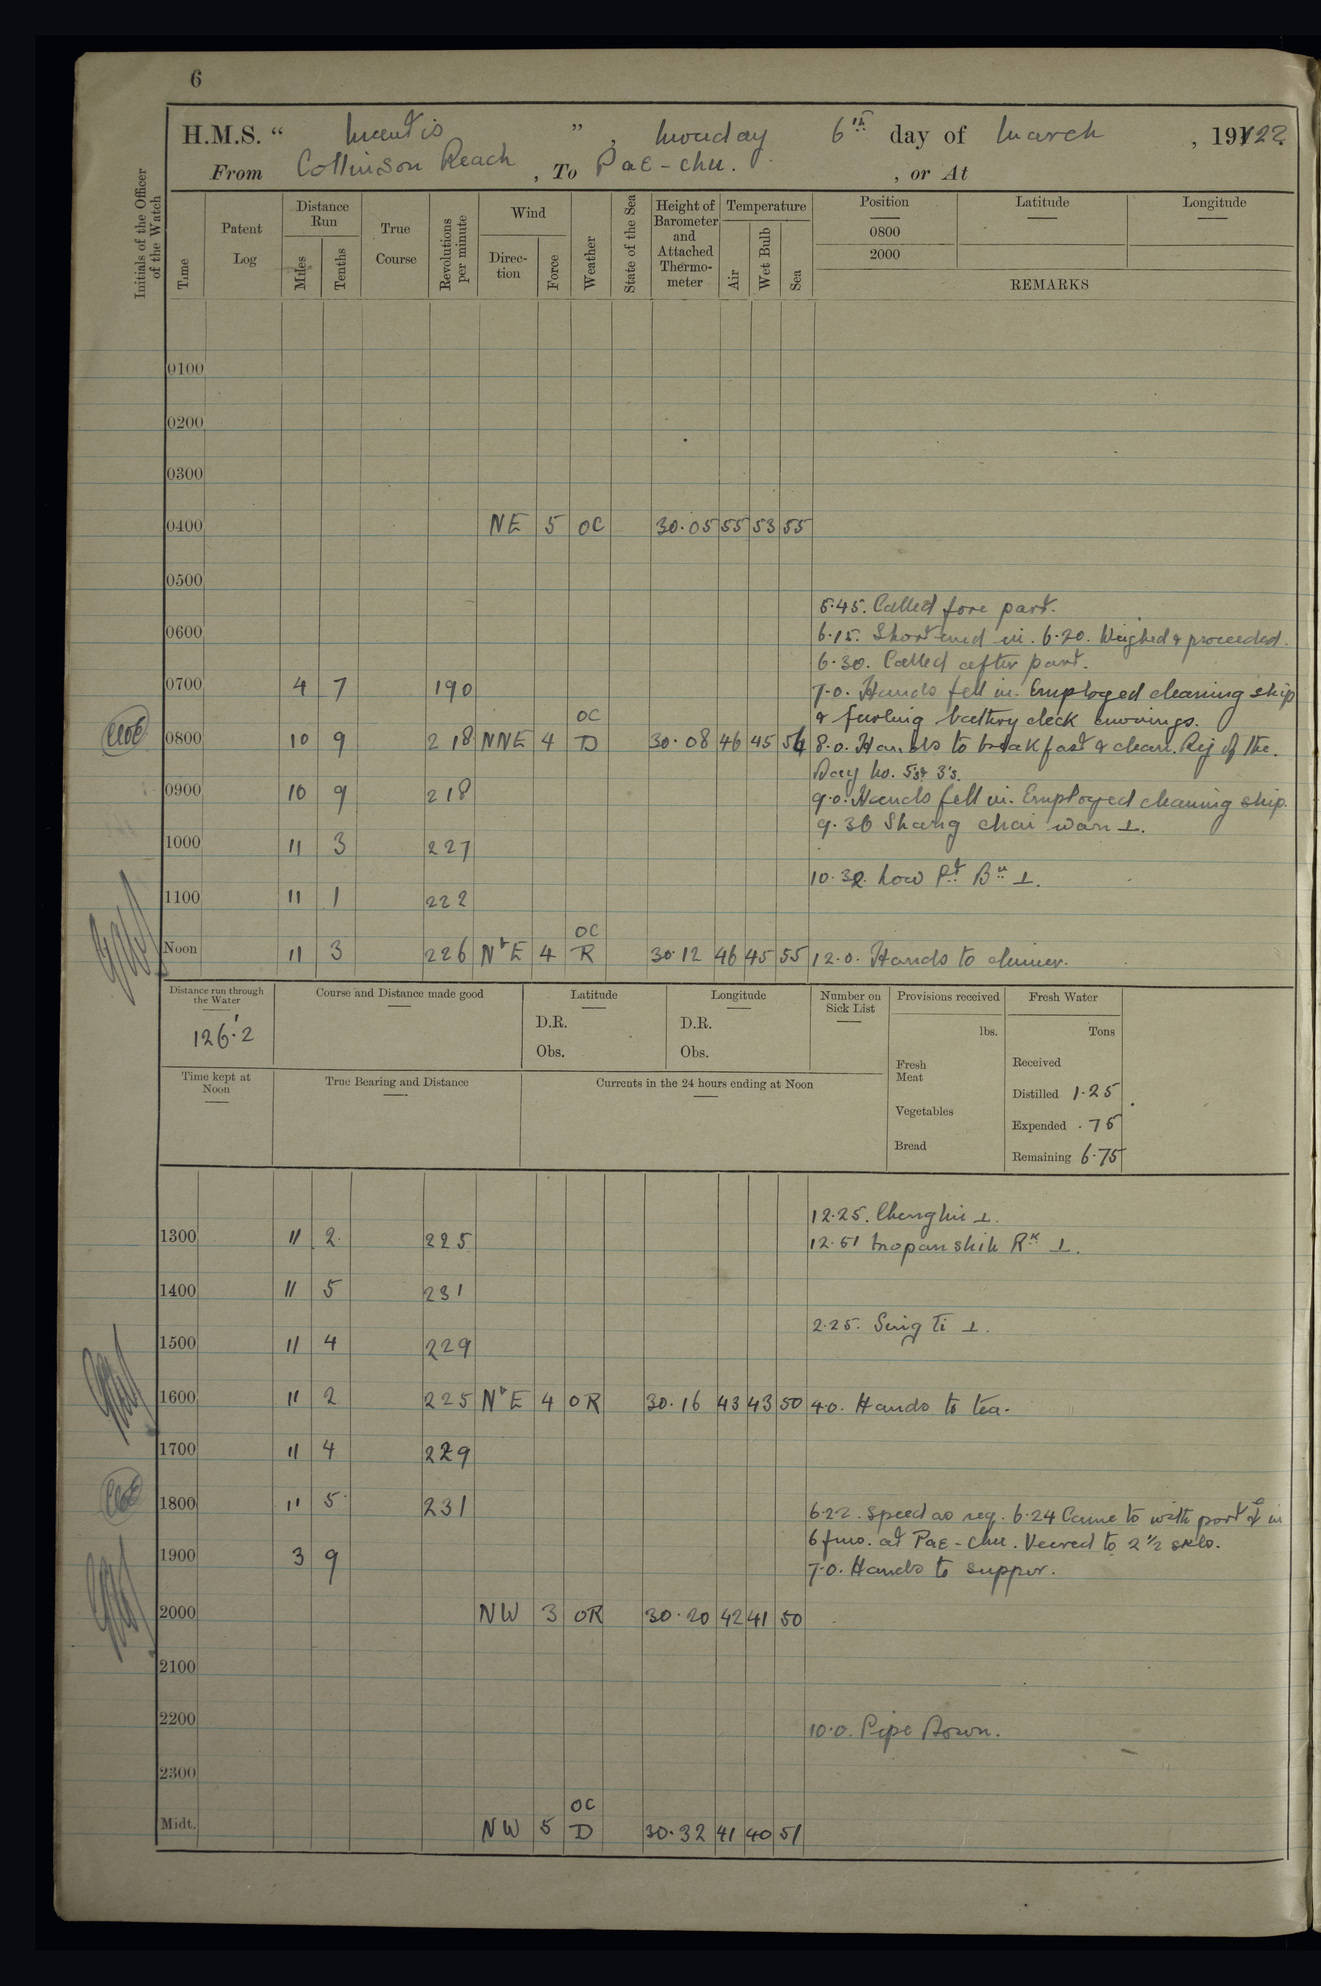 6
H.M.S. “ Mantis ” , Monday 6th day of March , 1922
From Collinson Reach , To Pae-chu. , or At
Initials of the Officer of the Watch
Time
Patent Log
Distance Run
Miles
Tenths
True Course
Revolutions per minute
Wind
Direction
Force
Weather
State of the Sea
Height of Barometer and Attached Thermometer
Temperature
Air
Wet Bulb
Sea
Position Latitude Longitude
0800
2000
REMARKS
0100
0200
0300
0400 NE 5 OC 30.05 55 53 55
0500
5.45. Called fore part.
0600 6.15. Shortened in. 6.20. Weighed & proceeded.
6.30. Called after part.
0700 4 7 190 7.0. Hands fell in. Employed cleaning ship
OC & furling battery deck awnings.
0800 10 9 218 NNE 4 D 30.08 46 45 54 8.0. Hands to breakfast & clean. Rig of the
Day No. 5s & 3's.
0900 10 9 218 9.0. Hands fell in. Employed cleaning ship.
9.36 Shang chai wan ⊥.
1000 11 3 227
10.32. Low Pt Bn ⊥.
1100 11 1 222
OC
Noon 11 3 226 NbE 4 R 30.12 46 45 55 12.0. Hands to dinner.
Distance run through the Water
126.2
Course and Distance made good
Latitude
D.R.
Obs.
Longitude
D.R.
Obs.
Number on Sick List
Provisions received
lbs.
Fresh Meat
Vegetables
Bread
Fresh Water
Tons
Received
Distilled 1.25
Expended .75
Remaining 6.75
Time kept at Noon
True Bearing and Distance
Currents in the 24 hours ending at Noon
12.25. Chenglin ⊥.
1300 11 2 225 12.51 Rk ⊥.
1400 11 5 231
2.25. Sing Ti ⊥.
1500 11 4 229
1600 11 2 225 NbE 4 OR 30.16 43 43 50 4.0. Hands to tea.
1700 11 4 229
1800 11 5 231
6.22. Speed as req. 6.24 Came to with port in
6 fms. at Pae-chu. Veered to 2½ skls.
1900 3 9
7.0. Hands to supper.
2000 NW 3 OR 30.20 42 41 50
2100
2200 10.0. Pipe Down.
2300
OC
Midt. NW 5 D 30.32 41 40 51